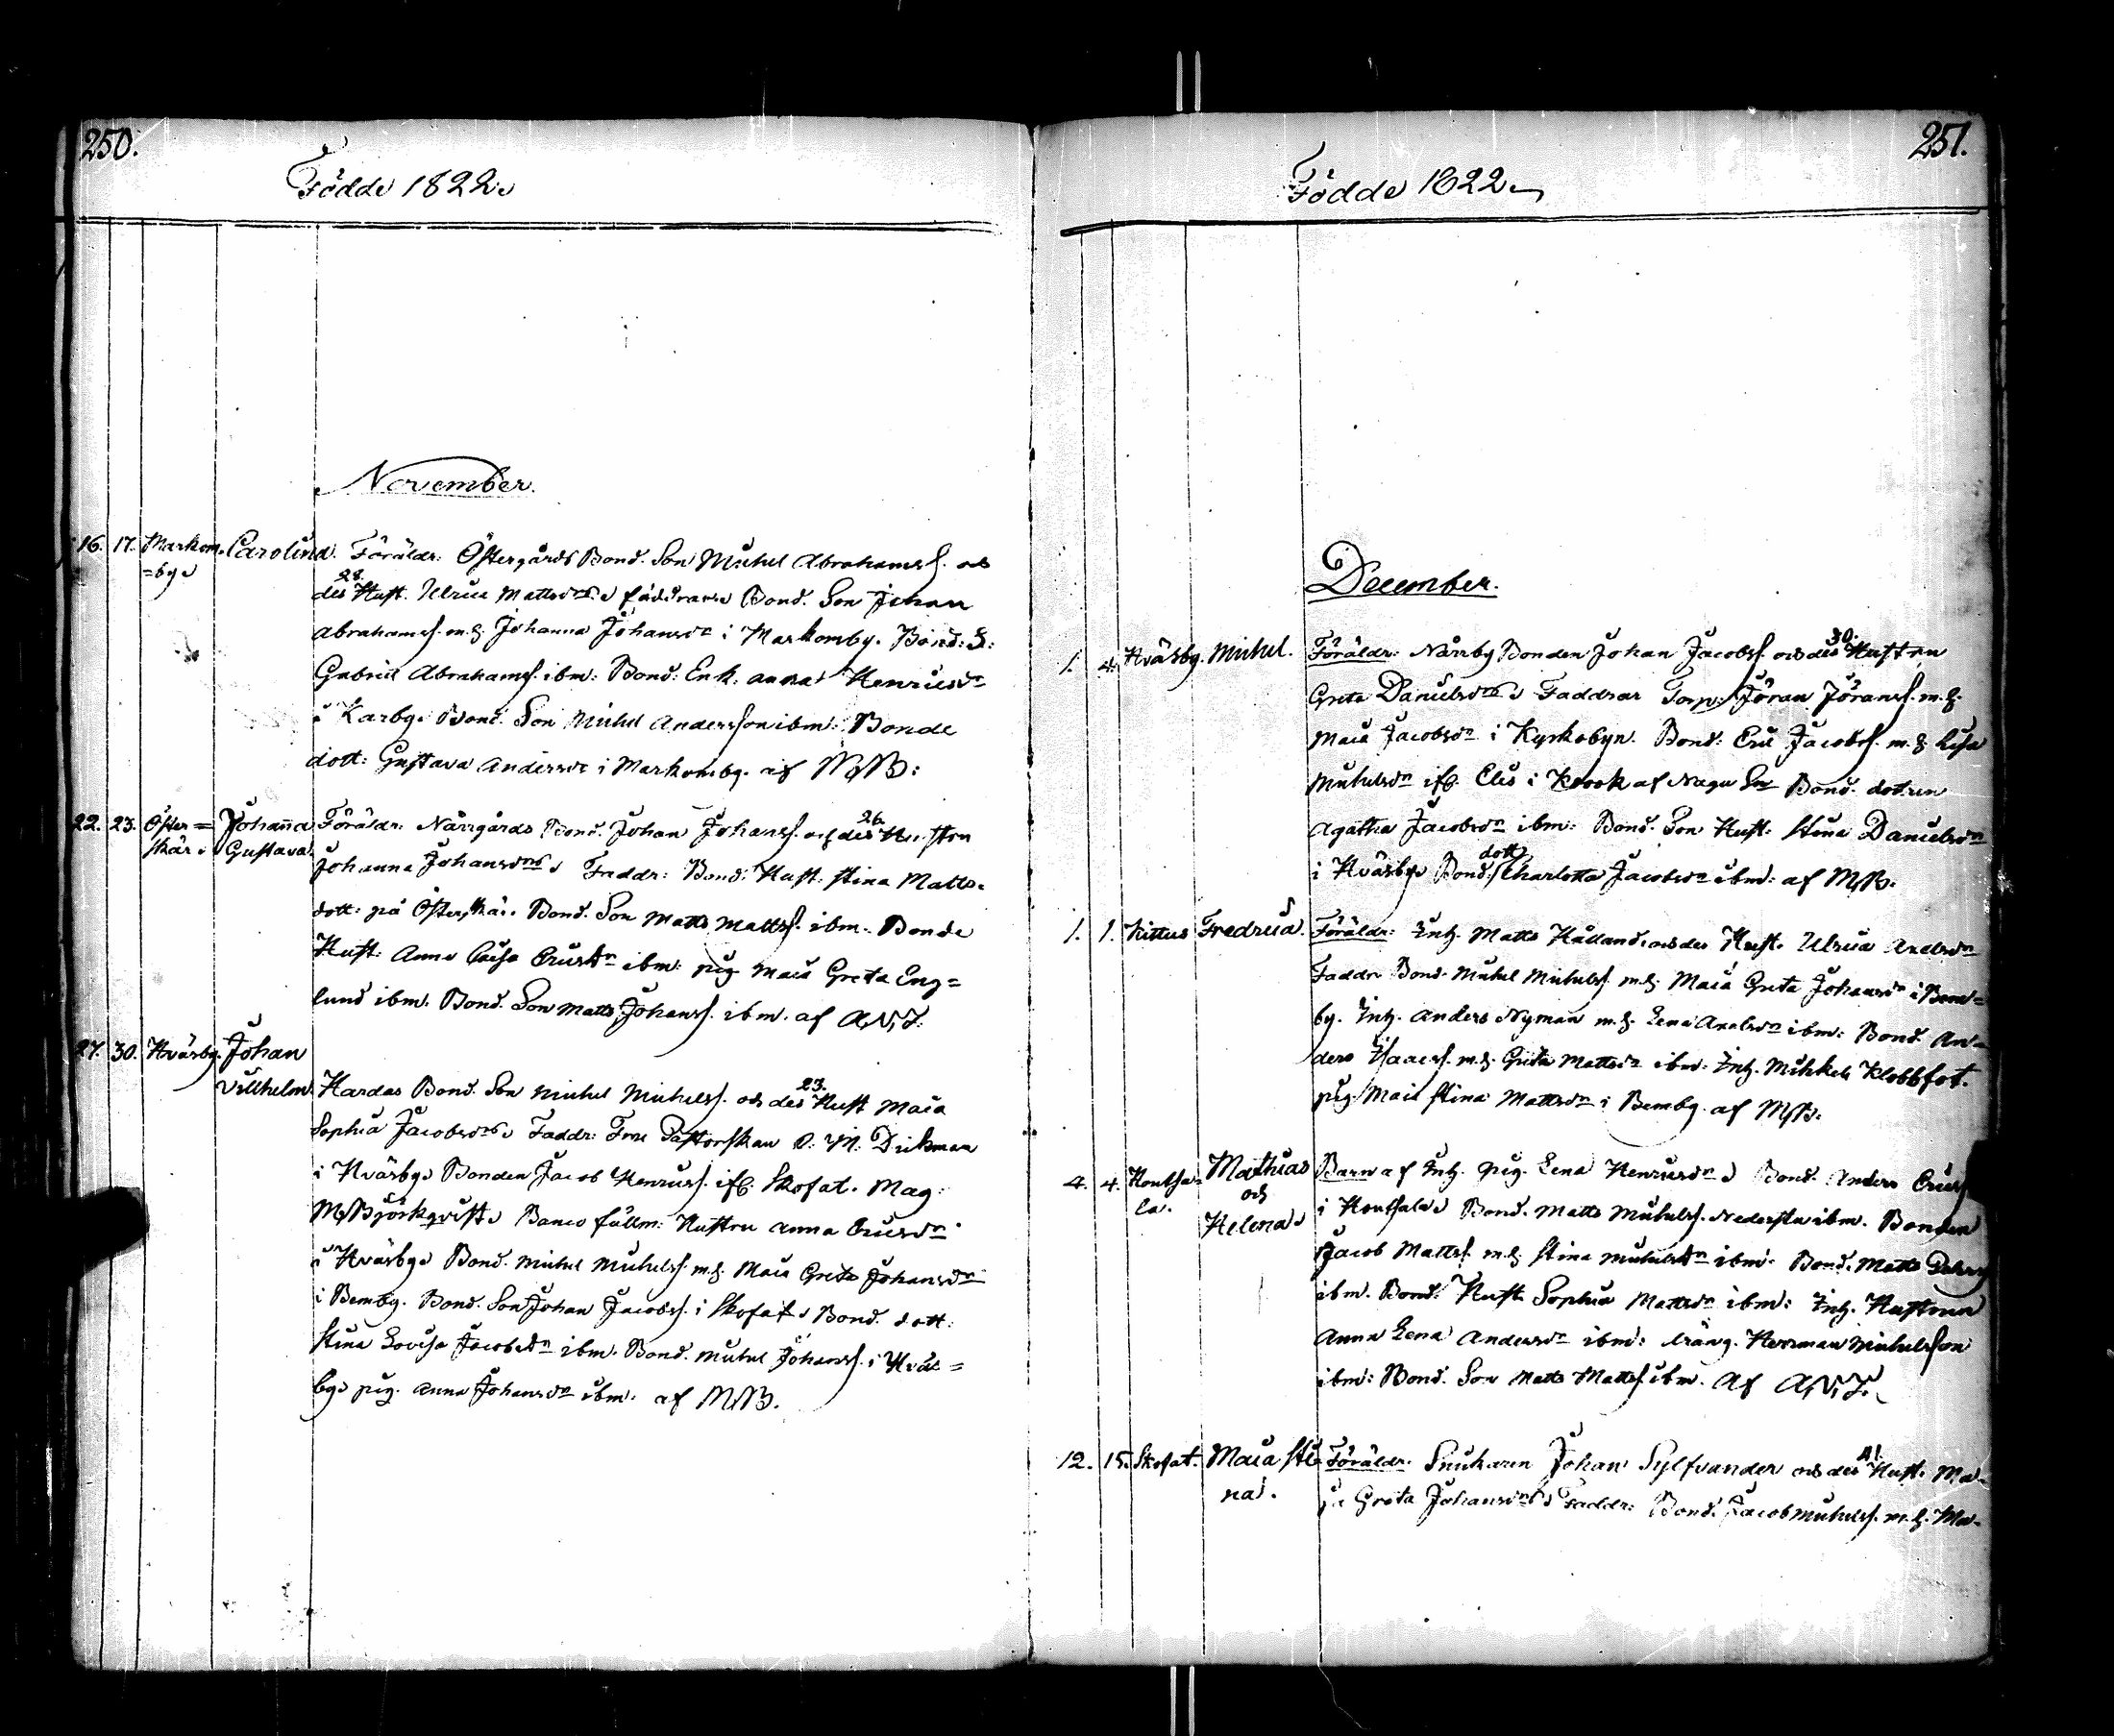 250.
Födde 1822
November.
16. 17. Markom- Carolina. Föräldr: Östergårds Bond. Son Michel Abrahamss. och
=by
28.
des Hust. Ulrica Mattsdr. Faddrar Bond. Son Johan
Abrahamss. m.h. Johanna Johansdr i Markomby. Bond: S:
Gabriel Abrahamss. ibm: Bond: Enk. Anna Henricsdr
i Karby Bond. Son Michel Andersson ibm: Bonde
dott: Gustava Andersdr i Markomby. af MB:
22. 23. Öster= Johanna Föräldr: Närrgårds Bond. Johan Johanss. och des Hustru
26.
skär. Gustava.
Johanna Johansdr. Faddr: Bond: Hust: Stina Matts-
dott: på Österskär. Bond. Son Matts Mattss. ibm. Bonde
Hust: Anna Caisa Ericsdr ibm: pig Maia Greta Eng=
lund ibm. Bond. Son Matts Johanss. ibm. af A.N.T:
27. 30. Hväsby. Johan
Villhelm. Hardas Bond. Son Michel Michelss. och des Hust Maia
23.
Sophia Jacobsdr. Faddr: Fru Pastorskan Dickman
i Hväsby Bonden Jacob Henricss. if. Skofat. Mag:
M. Björkqvist Banco fullm: Hustru Anna Ericsdr
i Hväsby Bond. Michel Michelss. m.h. Maia Greta Johansdr
i Bemby. Bond. Son Johan Jacobss. i Skofat Bond. dott:
Stina Lovisa Jacobsdr ibm. Bond. Michel Johanss. i Hväs=
by pig. Anna Johansdr ibm: af MB.
251.
Födde 1822
December.
1. 4. Hväsby. Michel. Föräldr: Närrby Bonden Johan Jacobss. och des Hustru
30.
Greta Danielsdr. Faddrar Torp. Jöran Jöranss. m.h.
Maia Jacobsdr i Kyrkobyn. Bond: Eric Jacobss. m.h. Lisa
Michelsdr if. Elis i Krook af Nagu Sn Bond. dottren
Agatha Jacobsdr ibm: Bond. Son Hust: Stina Danielsdr
i Hväsby Bond. dott Charlotta Jacobsdr ibm: af MB.
1. 1. Kittus Fredrica. Föräldr: Inh. Matts Hålland och des Hust. Ulrica Axelsdr
Faddr Bond. Michel Michelss. m.h. Maia Greta Johansdr i Bem=
by. Inh. Anders Nyman m.h. Lena Axelsdr ibm: Bond. An=
ders Isaacss. m.h. Greta Mattsdr ibm. Inh. Mihkels Klobbfot.
pig. Maia Stina Mattsdr i Bemby. af MB.
4. 4. Hontsa= Mathias Barn af Inh. pig. Lena Henricsdr Bond. Anders Erics
la. och
Helena i Hontsala Bond. Matts Michelss. Nedersta ibm. Bonden
Jacob Mattss. m.h. Stina Michelsdr ibm: Bond. Matts
ibm. Bond. Hust. Sophia Mattsdr ibm: Inh. Hustrun
Anna Lena Andersdr ibm: dräng. Herrman Michelsson
ibm: Bond. Son Matts Mattss. ibm. Af A.N.T.
12. 15. Skofat. Maia Sti- Föräldr. Snickaren Johan Sylfvander och des Hust. Ma-
41.
na. ja Greta Johansdr. Faddr: Bond. Jacob Michelss. m.h. Ma-